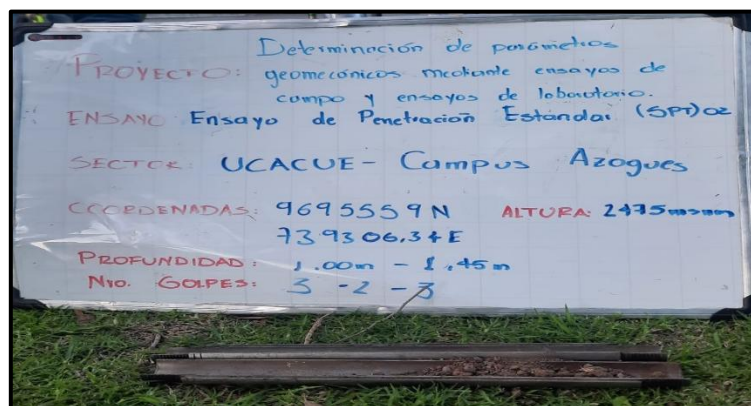 Determinación de parámetros
PROYECTO: geomecánicos mediante ensayos de
campo y ensayos de laboratorio.
ENSAYO Ensayo de Penetración Estándar (SPT) 02
SECTOR: UCACUE - Campus Azogues
COORDENADAS: 9695559N ALTURA: 2475msnm
739306,34E
PROFUNDIDAD: 1.00m - 1.45m
Nro. GOLPES: 3 - 2 - 3